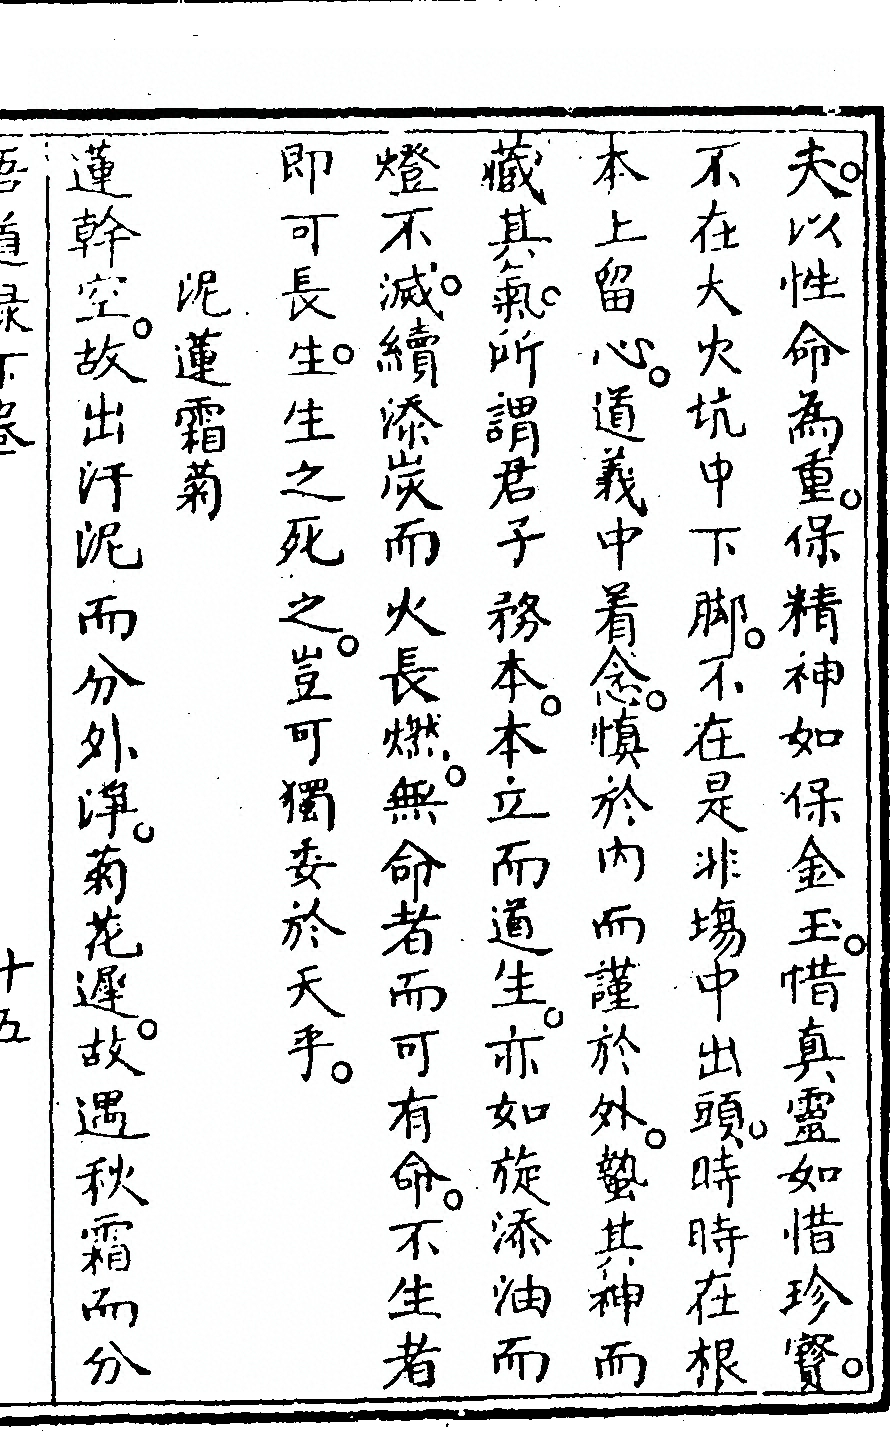 夫。以性命為重。保精神如保金玉。惜真靈如惜珍寶。
不在大火坑中下脚。不在是非塲中出頭。時時在根
本上留心。道義中着念。慎於内而謹於外。蟄其神而
藏其氣。所謂君子務本。本立而道生。亦如旋添油而
燈不滅。續添炭而火長燃。無命者而可有命。不生者
即可長生。生之死之。豈可獨委於天乎。
泥蓮霜菊
蓮幹空。故出汙泥而分外淨。菊花遲。故遇秋霜而分
悟道録下卷
十五